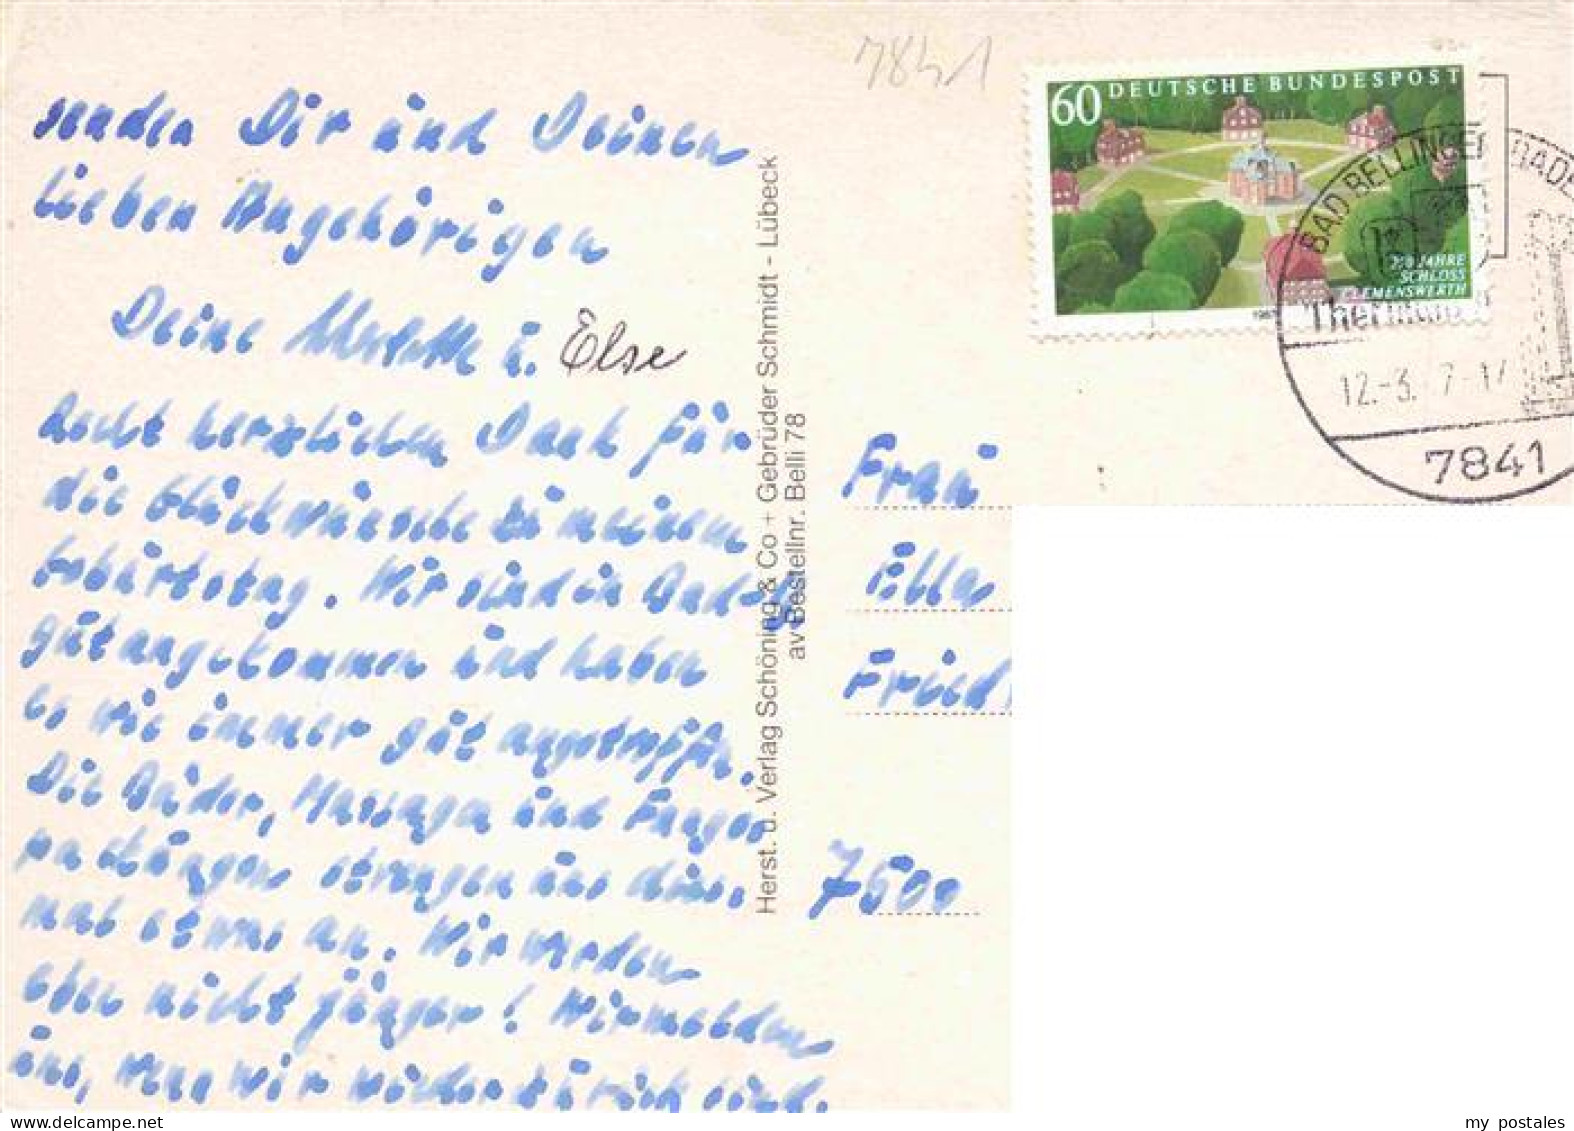 7841
senden Dir und Deinen
lieben Angehörigen
Deine u. Else
Recht herzlichen Dank für
die Glückwünsche zu meinem
Geburtstag. Wir sind in Bad-B.
gut angekommen und haben
es wie immer gut angetroffen.
Die Bäder, Massagen und Fango
packungen strengen uns dies-
mal etwas an. Wir werden
eben nicht jünger! Wir melden
uns, wenn wir wieder zurück sind.
Herst. u. Verlag Schöning & Co + Gebrüder Schmidt - Lübeck
av Bestellnr. Belli 78
60 DEUTSCHE BUNDESPOST
250 JAHRE
SCHLOSS
CLEMENSWERTH
BAD BELLINGEN BADE
12.-3. 7-17
7841
Frau
Ella
Fried
7500
my postales